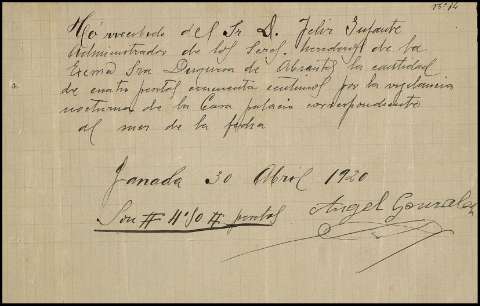 Nº 16
Hé recibido del Sr D. Felix Infante
Administrador de los Seres. de la
Excma Sra Duquesa de Abrantes la cantidad
de cuatro pesetas cincuenta centimos por la vigilancia
nocturna de la Casa palacio correspondiente
al mes de la fecha
Granada 30 Abril 1920
Son # 4'50 # pesetas
Angel Gonzalez